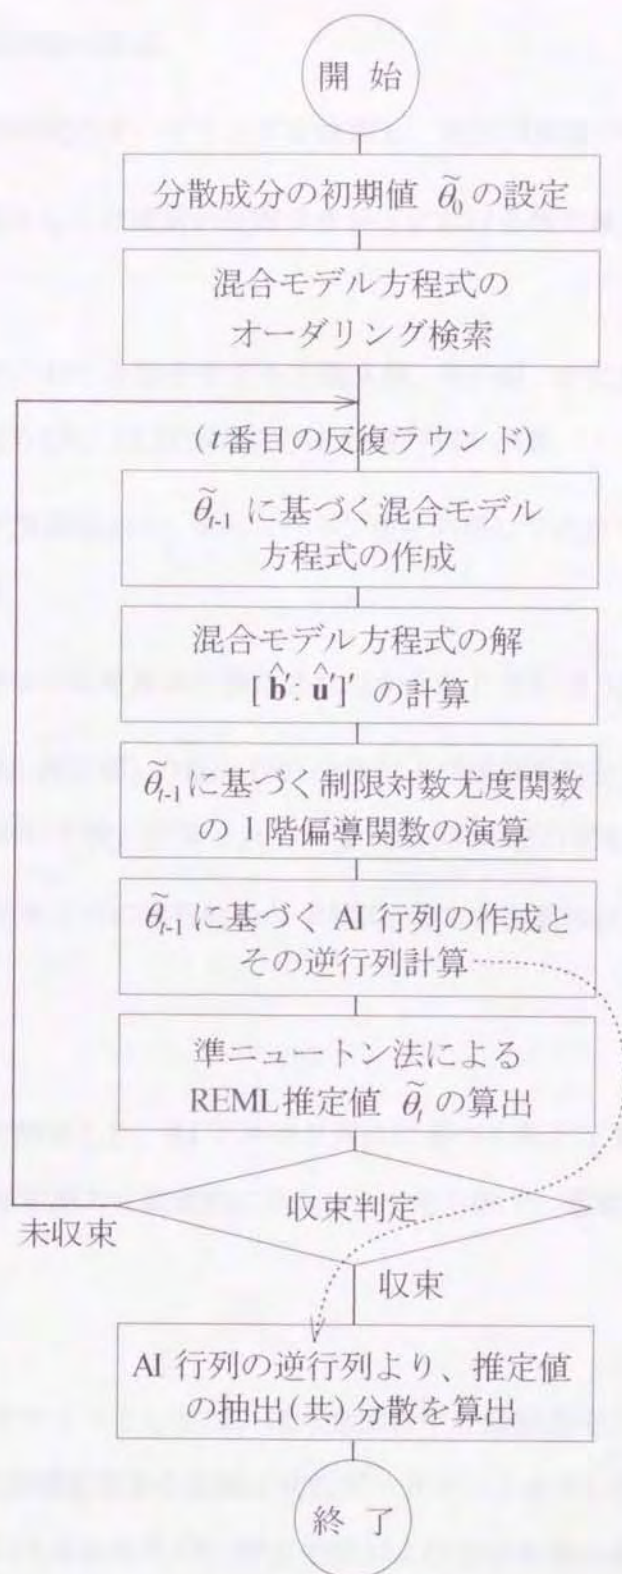 開 始
分散成分の初期値 θ̃₀ の設定
混合モデル方程式の
オーダリング検索
(t番目の反復ラウンド)
θ̃ₜ₋₁ に基づく混合モデル
方程式の作成
混合モデル方程式の解
[ b̂′: û′]′ の計算
θ̃ₜ₋₁に基づく制限対数尤度関数
の 1階偏導関数の演算
θ̃ₜ₋₁に基づく AI 行列の作成と
その逆行列計算
準ニュートン法による
REML推定値 θ̃ₜ の算出
収束判定
未収束
収束
AI 行列の逆行列より、推定値
の抽出(共)分散を算出
終 了